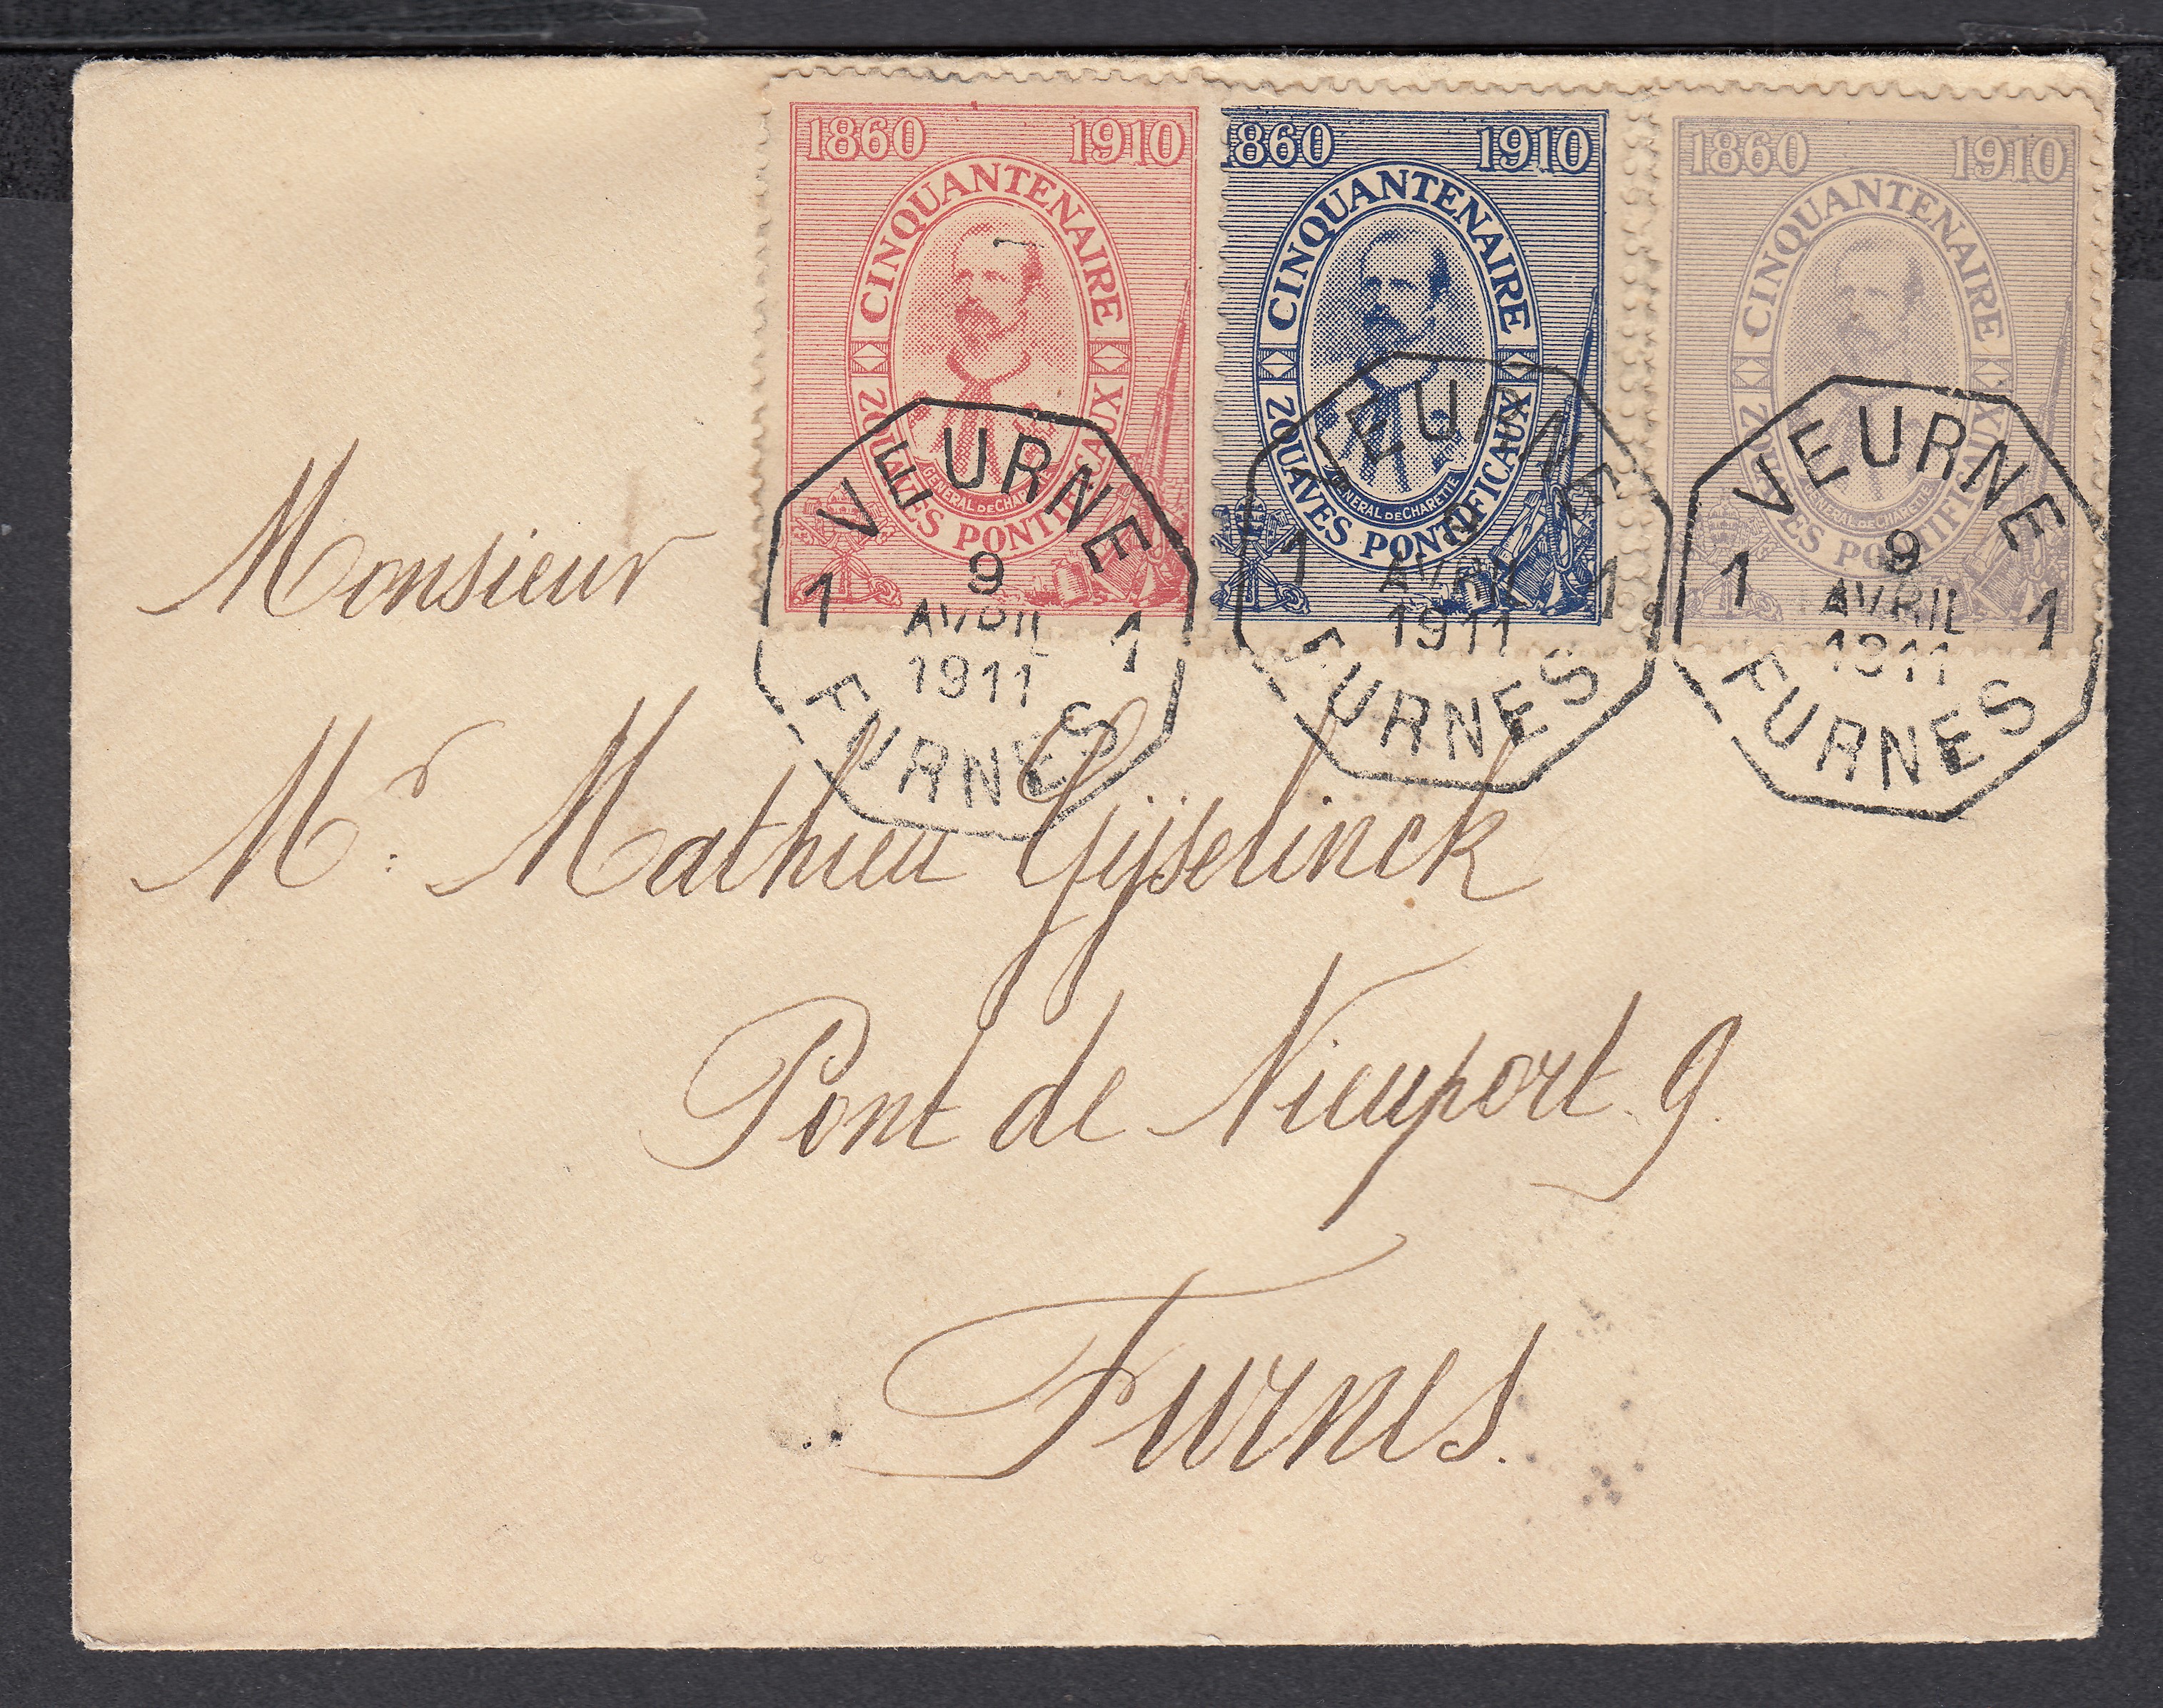 1860 1910
CINQUANTENAIRE
ZOUAVES PONTIFICAUX
GENERAL DE CHARETTE
1860 1910
CINQUANTENAIRE
ZOUAVES PONTIFICAUX
GENERAL DE CHARETTE
1860 1910
CINQUANTENAIRE
ZOUAVES PONTIFICAUX
GENERAL DE CHARETTE
VEURNE
1 9 1
AVRIL
1911
FURNES
VEURNE
1 9 1
AVRIL
1911
FURNES
VEURNE
1 9 1
AVRIL
1911
FURNES
Monsieur
Mr. Mathieu Gijselinck
Pont de Nieuport 9.
Furnes.